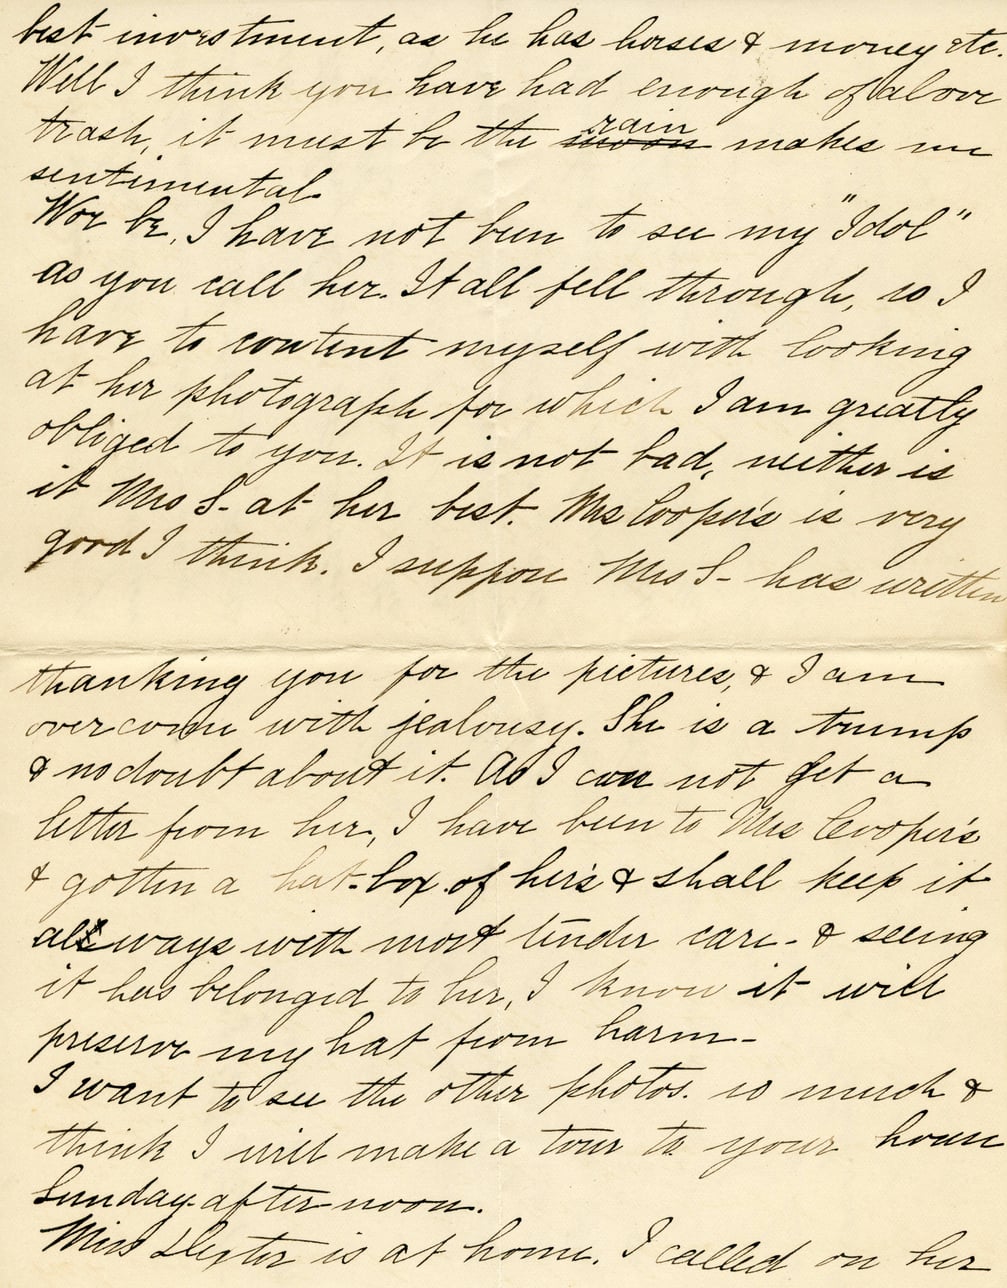 best investment, as he has horses & money etc.
Well I think you have had enough of above
trash, it must be the moon rain makes me
sentimental.
Wor be, I have not been to see my "Idol"
as you call her. It all fell through, so I
have to content myself with looking
at her photograph for which I am greatly
obliged to you. It is not bad, neither is
it Mrs S- at her best. Mrs Cooper's is very
good I think. I suppose Mrs S- has written
thanking you for the pictures, & I am
overcome with jealousy. She is a trump
& no doubt about it. As I can not get a
letter from her, I have been to Mrs Cooper's
& gotten a hat-box of her's & shall keep it
always with most tender care - & seeing
it has belonged to her, I know it will
preserve my hat from harm -
I want to see the other photos. so much &
think I will make a tour to your house
Sunday-afternoon.
Miss is at home. I called on her